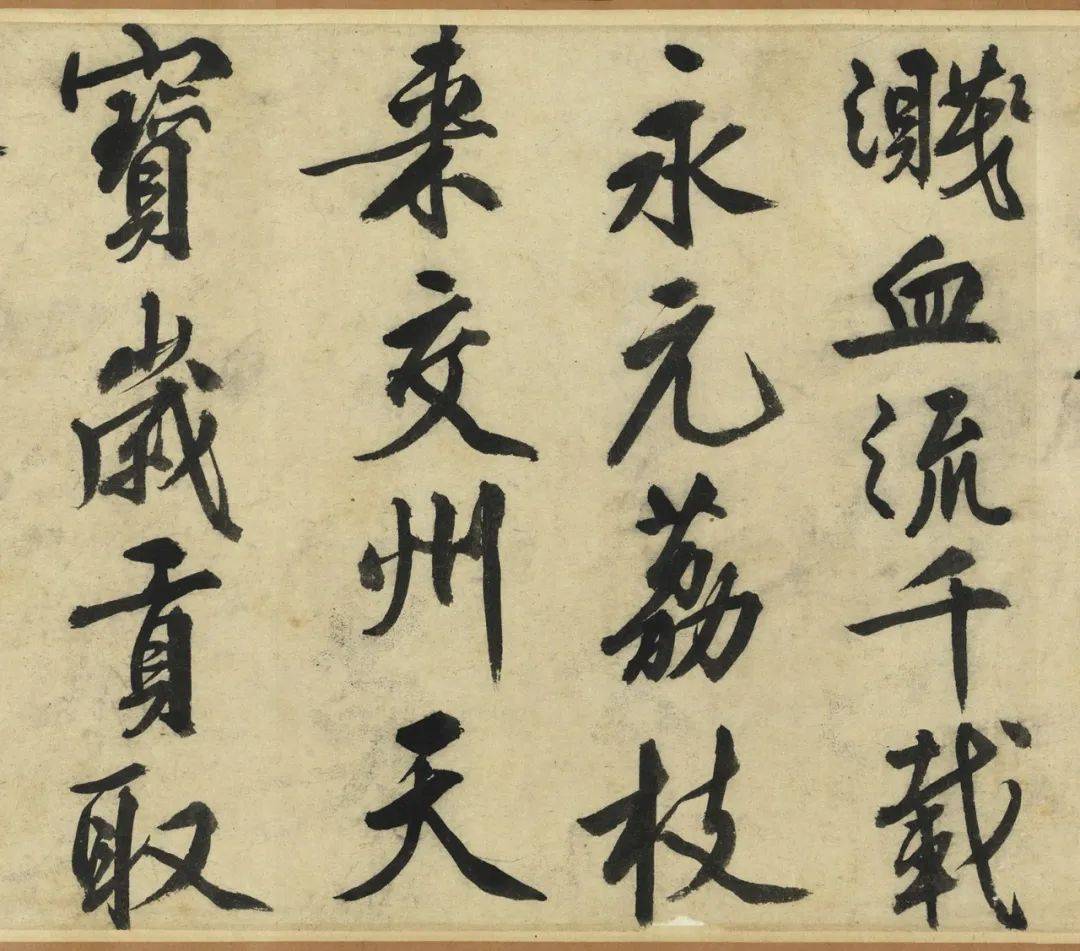 濺血流千載
永元荔枝
来交州天
寶歲貢取